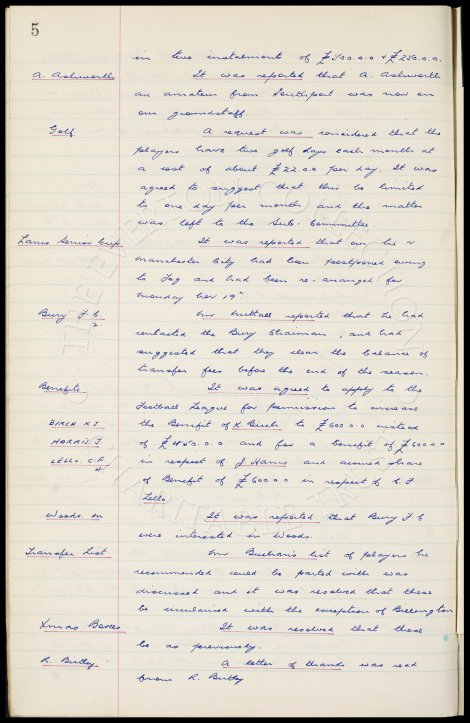 5
in two instalments of £500.0.0 & £250.0.0.
A. Ashworth
It was reported that A. Ashworth
an amateur from Southport was now on
our groundstaff.
Golf
A request was considered that the
players have two golf days each month at
a cost of about £22.0.0 per day. It was
agreed to suggest that this be limited
to one day per month and the matter
was left to the Sub. Committee.
Lancs Senior Cup.
It was reported that our tie v
Manchester City had been postponed owing
to Fog and had been re-arranged for
Monday Nov 19th
Bury F.C.
2
Mr Nuttall reported that he had
contacted the Bury Chairman, and had
suggested that they clear the balance of
transfer fees before the end of the season.
Benefits
It was agreed to apply to the
Football League for permission to increase
BIRCH. K.J.
the Benefit of K. Birch to £600.0.0 instead
HARRIS. J.
of £450.0.0 and for a benefit of £600.0.0
LELLO. C.F.
4
in respect of J. Harris and accrued share
of Benefit of £600.0.0 in respect of C. F.
Lello.
Woods. M
It was reported that Bury F.C
were interested in Woods.
Transfer List
Mr Buchan's list of players he
recommended could be parted with was
discussed and it was resolved that these
be circularised with the exception of Billington
Xmas Boxes
It was resolved that these
be as previously.
R. Birtley.
A letter of thanks was read
from R. Birtley
THE EVERTON COLLECTION
CHARITABLE TRUST